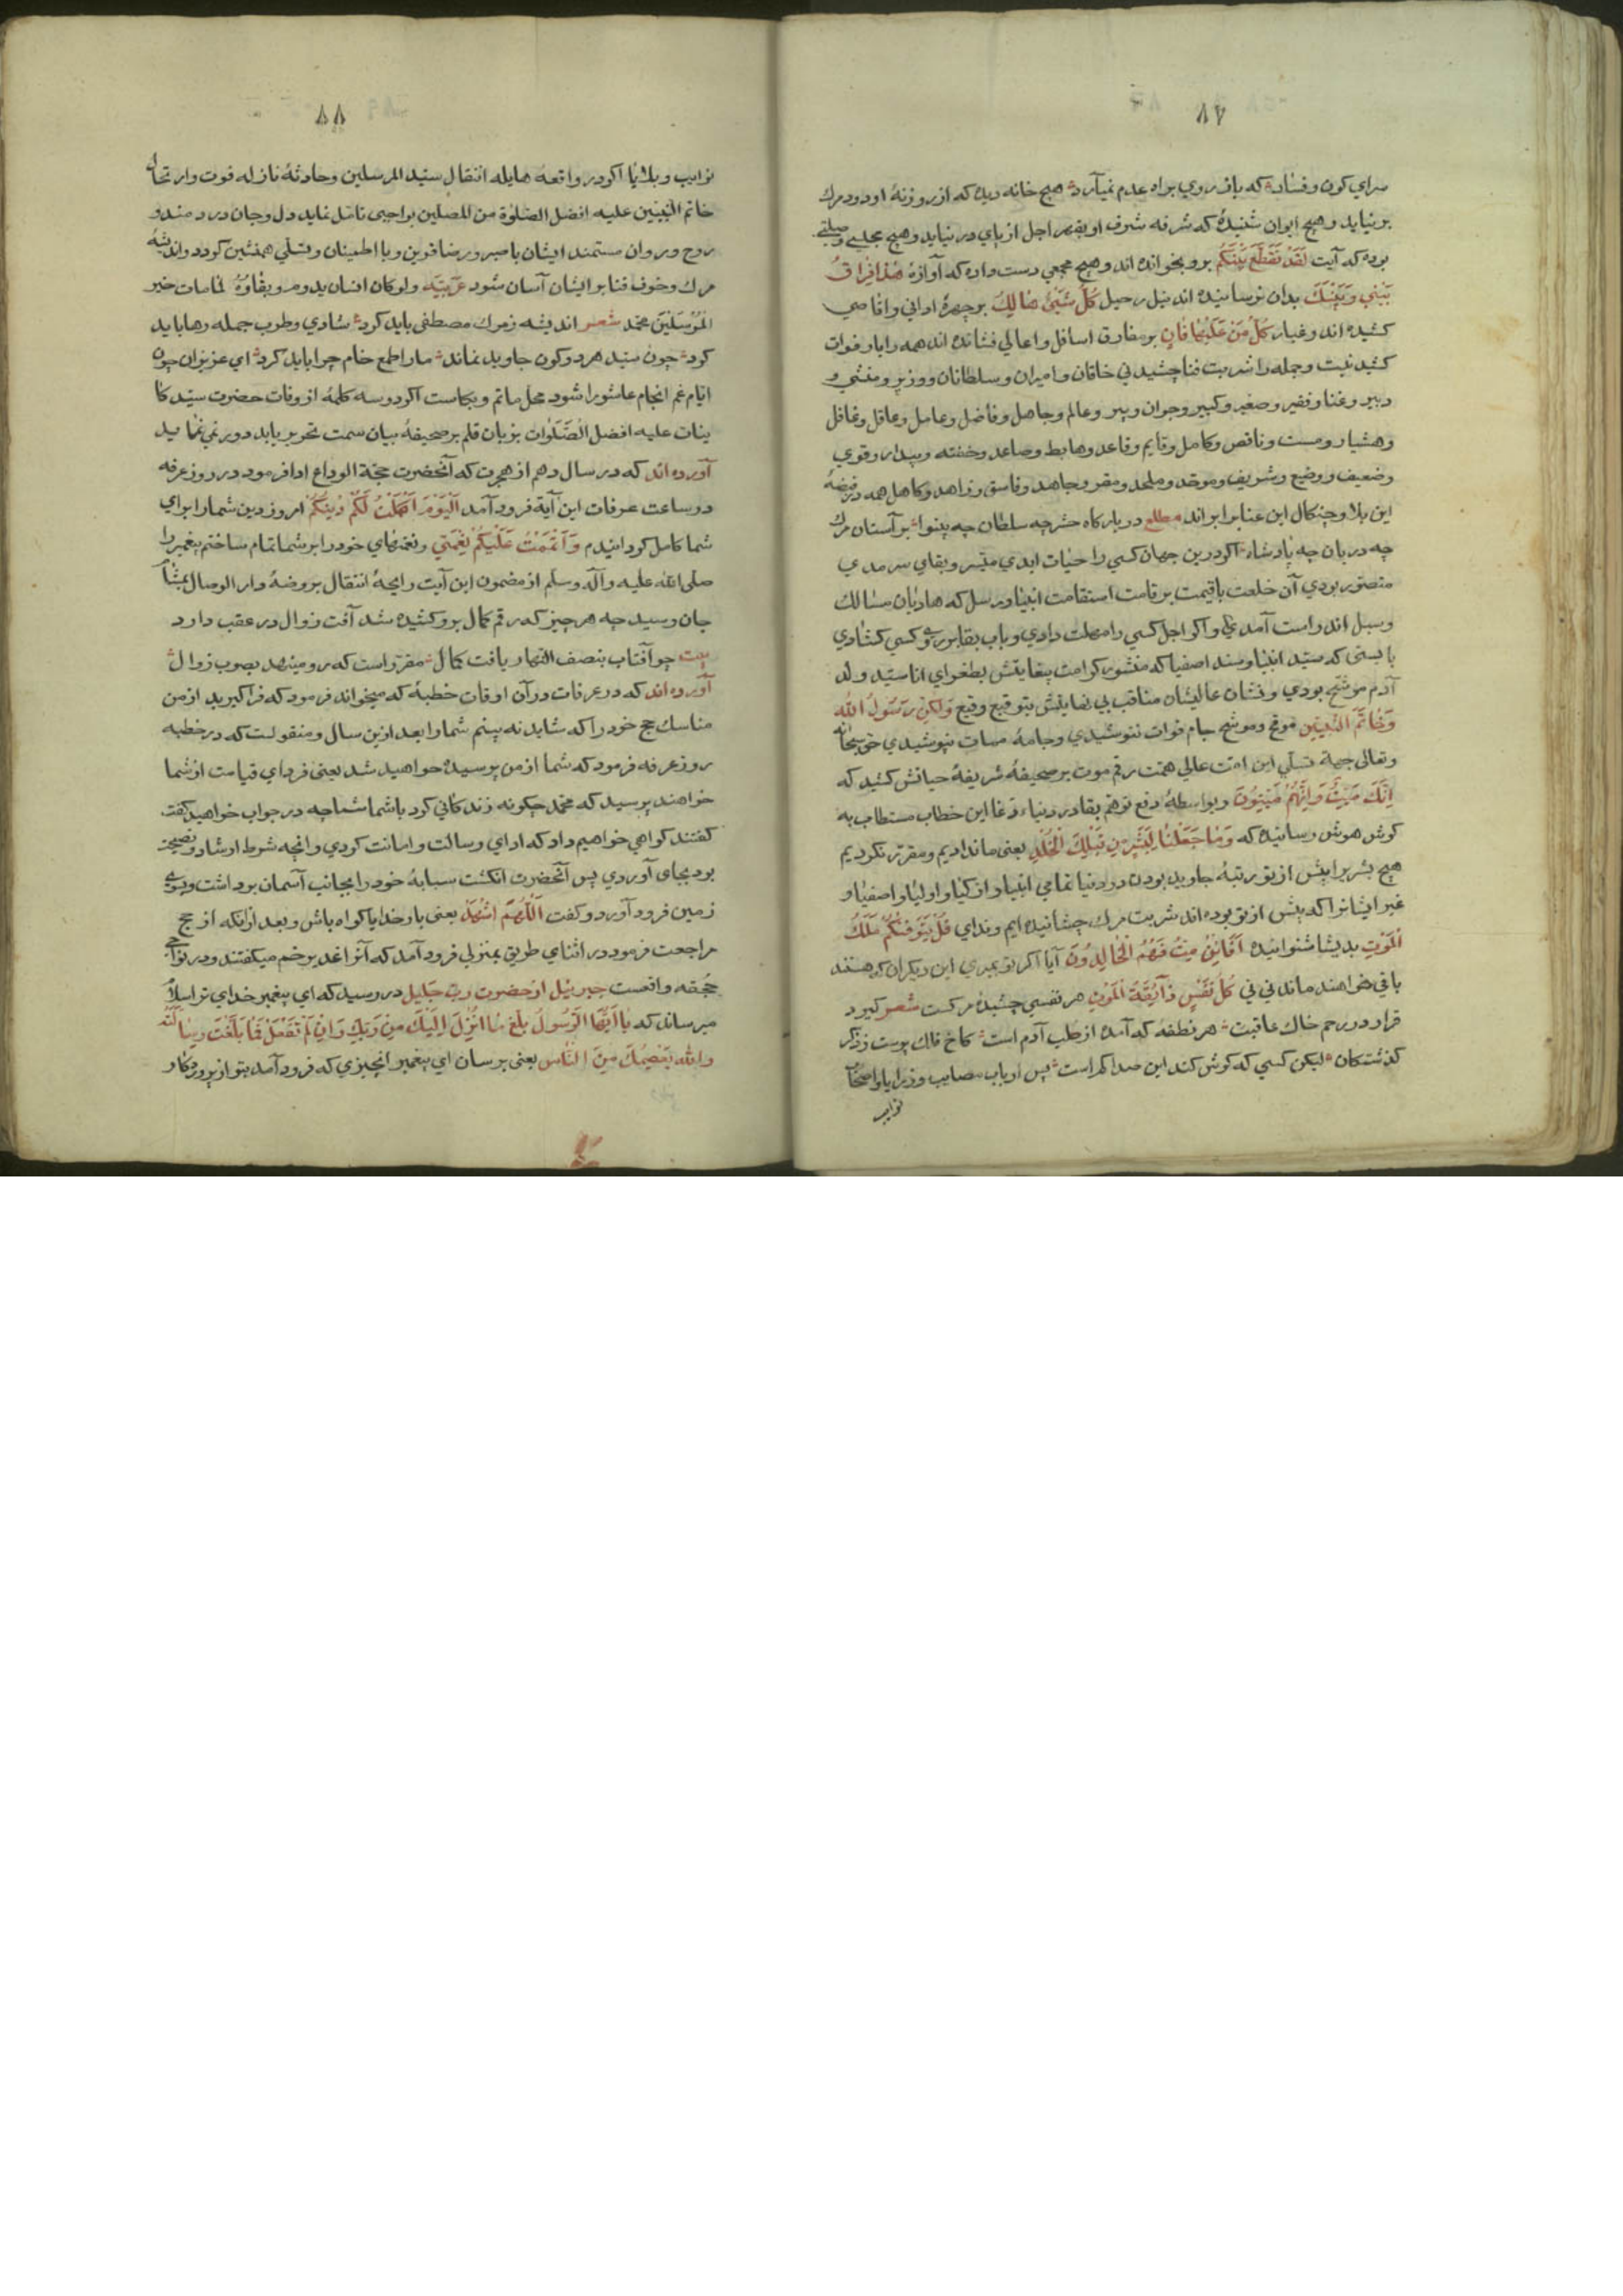 ۸۷
سرای کون و فساد که باز روی براه عدم نمیآرد هیچ خانه دیده که از روزنهٔ او دود مرك
بر نیاید و هیچ ایوان شنیدهٔ که شرفه شرف او بقهر اجل از پای در نیاید و هیچ مجلسی وصلتی
بوده که آیت لَقَدْ تَقَطَّعَ بَیْنَکُمْ برو بخوانده اند و هیچ مجمعی دست داده که آوازهٔ هٰذا فِرَاقُ
بَیْنِی وَبَیْنِكَ بدان نرسانیده اند نیل رحیل کُلُّ شَیْئٍ هَالِكٌ بر چهرهٔ ادانی و اقاصی
کشیده اند و غبار کُلُّ مَنْ عَلَیْهَا فَانٍ بر مفارق اسافل و اعالی فشانده اند همه را بار فوات
کشید نیت و جمله را شربت فنا چشید نی خاقان و امیران و سلطانان و وزیر و منشی و
دبیر و غنا و فقیر و صغیر و کبیر و جوان و پیر و عالم و جاهل و فاضل و عامل و عاقل و غافل
و هشیار و مست و ناقص و کامل و قایم و قاعد و هابط و صاعد و خفته و بیدار و قوی
و ضعیف و وضیع و شریف و موحد و ملحد و مقر و جاهد و فاسق و زاهد و کاهل همه در قبضهٔ
این بلا و چنکال این عنا برابر اند مطلع در بارکاه حشر چه سلطان چه بینوا بر آستان مرك
چه دربان چه پادشاه اکر درین جهان کسی را حیات ابدی میسر و بقای سرمدی
متصور بودی آن خلعت باقیمت بر قامت استقامت انبیا و رسل که هادیان مسالك
و سبل اند راست آمدی و اکر اجل کسی را مهلت دادی و باب بقا بر روی کسی کشادی
بایستی که سید انبیا و سند اصفیا که منشور کرامت بیغایتش بطغرای انا سید ولد
آدم موشح بودی و نشان عالیشان مناقب بی نهایتش بتوقیع وقیع وَلٰکِنْ رَسُولَ اللّٰهِ
وَخَاتَمَ النَّبِیِّینَ موقع و موشح جام فوات ننوشیدی و جامهٔ ممات نپوشیدی حق سبحانه
و تعالی جهة تسلی این امّت عالی همّت رقم موت بر صحیفهٔ شریفهٔ حیاتش کشید که
اِنَّكَ مَیِّتٌ وَاِنَّهُمْ مَیِّتُونَ و بواسطهٔ دفع توهم بقا در دنیاء دغا این خطاب مستطاب به
کوش هوش رسانیده که وَمَا جَعَلْنَا لِبَشَرٍ مِنْ قَبْلِكَ الْخُلْدَ یعنی ما ندادیم و مقرر نکردیم
هیچ بشر یرا پیش از تو رتبهٔ جاوید بودن در دنیا تمامی انبیا و ازکیا و اولیا و اصفیا و
غیر ایشانرا که پیش از تو بوده اند شربت مرك چشانیده ایم و ندای قُلْ یَتَوَفّٰکُمْ مَلَكُ
الْمَوْتِ بدیشا شنوانیده اَفَاِنْ مِتَّ فَهُمُ الْخَالِدُونَ آیا اکر تو بمیری این دیکران که هستند
باقی خواهند ماند نی نی کُلُّ نَفْسٍ ذَآئِقَةُ الْمَوْتِ هر نفسی چشیدهٔ مرکست شعر کیرد
قرار در رحم خاك عاقبت هر نطفهٔ که آمده از صلب آدم است کاخ فلك پرست ز ذکر
کذشتکان لیکن کسی که کوش کند این صدا کم است پس ارباب مصایب و رزایا و اصحاب
نوایب
۸۸
نوایب و بلایا اکر در واقعهٔ هایله انتقال سیّد المرسلین و حادثهٔ نازله فوت و ارتحال
خاتم النّبیّین علیه افضل الصّلوٰة من المصلین بواجبی تأمل نماید دل و جان دردمند و
روح و روان مستمند ایشان با صبر و رضا قرین و با اطمینان و تسلی همنشین کردد و اندیشهٔ
مرك و خوف فنا بر ایشان آسان شود عَرَبِیَّه ولو کان انسان یدوم و بقاؤهُ لما مات خیر
المُرسَلینَ محمّد شعر اندیشه ز مرك مصطفی باید کرد شادی و طرب جمله رها باید
کرد چون سیّد هر دو کون جاوید نماند ما را طمع خام چرا باید کرد ای عزیزان چون
ایّام غم انجام عاشورا شود محل ماتم و بکاست اکر دو سه کلمهٔ از وفات حضرت سیّد کا
ینات علیه افضل الصّلوات بزبان قلم بر صحیفهٔ بیان سمت تحریر یابد دور نمی نماید
آورده اند که در سال دهم از هجرت که آنحضرت حجّة الوداع ادا فرمود در روز عرفه
در ساعت عرفات این آیة فرود آمد اَلْیَوْمَ اَکْمَلْتُ لَکُمْ دِینَکُمْ امروز دین شما را برای
شما کامل کردانیدم وَاَتْمَمْتُ عَلَیْکُمْ نِعْمَتِی و نعمتهای خود را بر شما تمام ساختم پیغمبر را
صلی الله علیه وآله وسلم از مضمون این آیت رایحهٔ انتقال بروضهٔ دار الوصال بمشام
جان رسید چه هر چیز که رقم کمال برو کشیده شد آفت زوال در عقب دارد
بیت چو آفتاب بنصف النهار یافت کمال مقرر است که رو مینهد بصوب زوال
آورده اند که در عرفات در آن اوقات خطبهٔ که میخواند فرمود که فرا کیرید از من
مناسك حج خود را که شاید نه بینم شما را بعد ازین سال و منقولست که در خطبه
روز عرفه فرمود که شما از من پرسیده خواهید شد یعنی فردای قیامت از شما
خواهند پرسید که محمّد چکونه زندکانی کرد با شما شما چه در جواب خواهید کفت
کفتند کواهی خواهیم داد که ادای رسالت و امانت کردی و انچه شرط ارشاد و نصیحت
بود بجای آوردی پس آنحضرت انکشت سبابهٔ خود را بجانب آسمان برداشت و بسوی
زمین فرود آورد و کفت اَللّٰهُمَّ اشْهَدْ یعنی بار خدایا کواه باش و بعد ازانکه از حج
مراجعت فرمود در اثنای طریق بمنزلی فرود آمد که آنرا غدیر خم میکفتند و در نواحی
حجفه واقعست جبرئیل از حضرت ربّ جلیل در رسید که ای پیغمبر خدای ترا سلام
میرساند که یَا اَیُّهَا الرَّسُولُ بَلِّغْ مَا اُنْزِلَ اِلَیْكَ مِنْ رَبِّكَ وَاِنْ لَمْ تَفْعَلْ فَمَا بَلَّغْتَ رِسَالَتَهُ
وَاللّٰه یَعْصِمُكَ مِنَ النَّاس یعنی برسان ای پیغمبر انچیزی که فرود آمد بتو از پروردکار